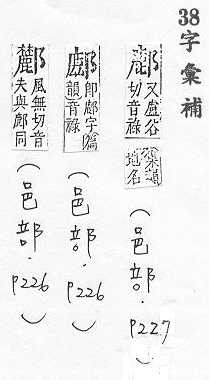 38字彙補
又盧谷切音祿 地名
(邑部.P227)
字篇韻音祿
(邑部.P226)
風無切音夫與鄜同
(邑部.P226)